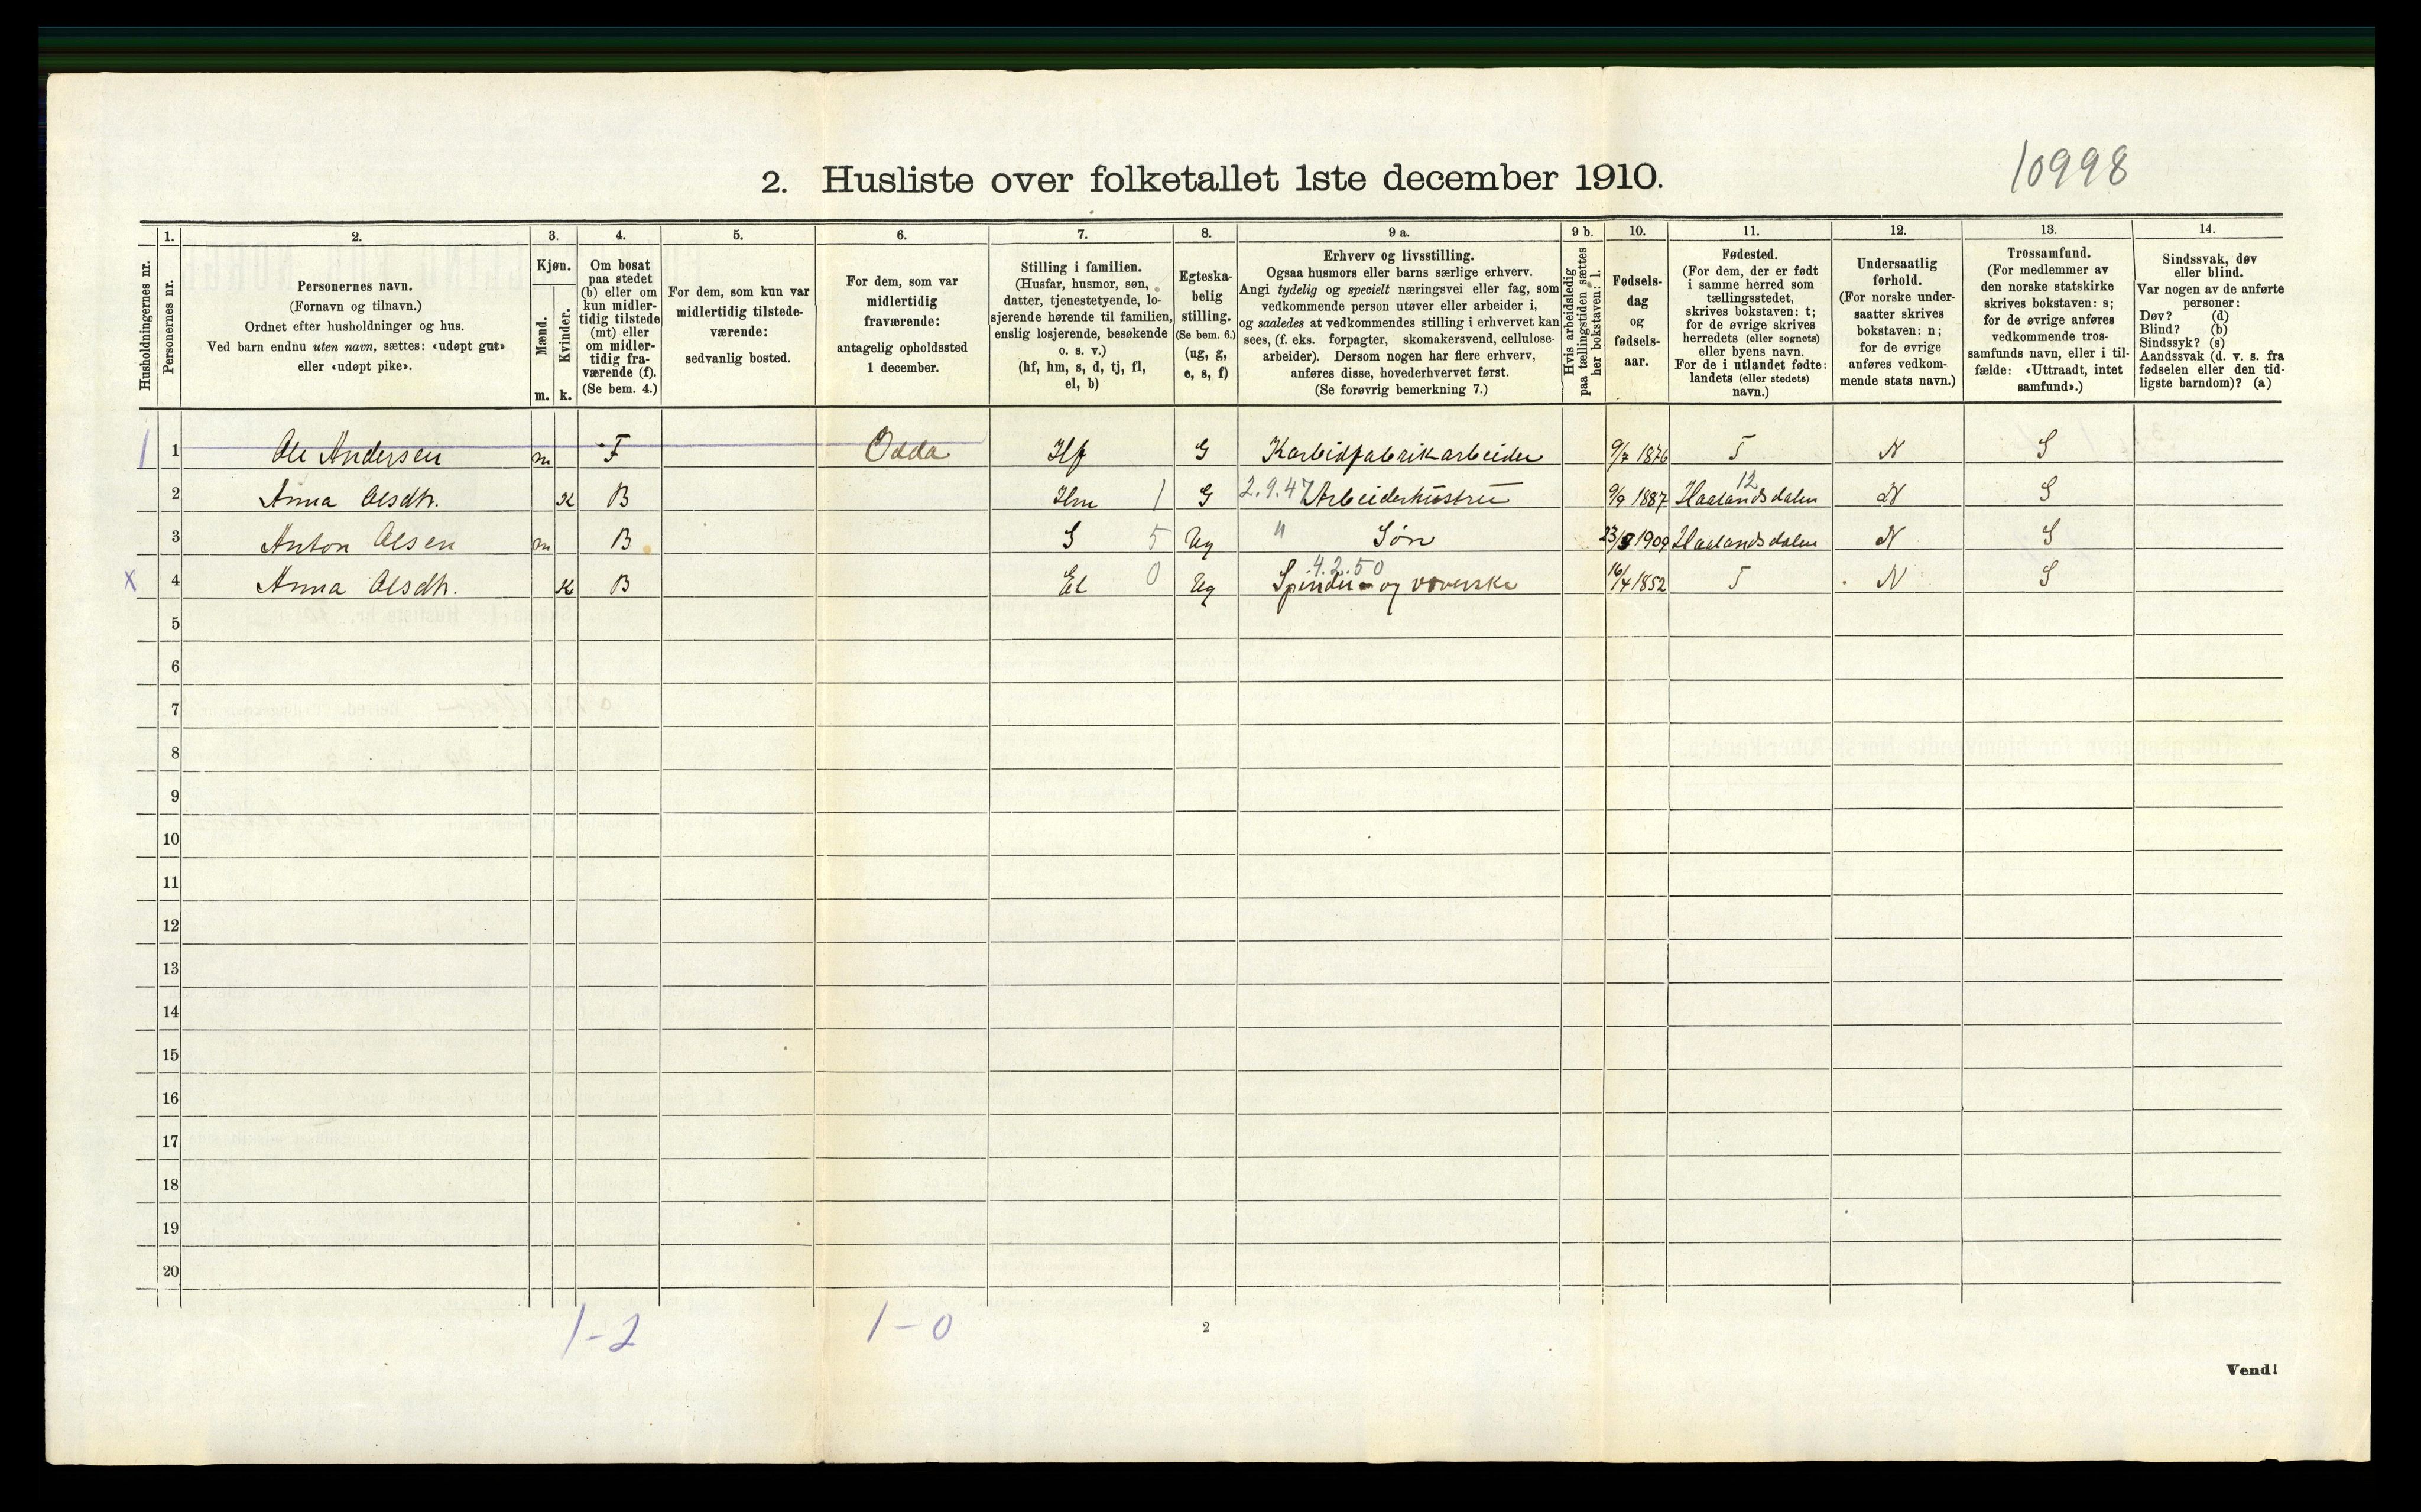 10998
2. Husliste over folketallet 1ste december 1910.
Husholdningernes nr.
1.
Personernes nr.
2.
Personernes navn.
(Fornavn og tilnavn.)
Ordnet efter husholdninger og hus.
Ved barn endnu uten navn, sættes: «udøpt gut»
eller «udøpt pike».
3.
Kjøn.
Mænd.
Kvinder.
m. k.
4.
Om bosat
paa stedet
(b) eller om
kun midler-
tidig tilstede
(mt) eller
om midler-
tidig fra-
værende (f).
(Se bem. 4.)
5.
For dem, som kun var
midlertidig tilstede-
værende:
sedvanlig bosted.
6.
For dem, som var
midlertidig
fraværende:
antagelig opholdssted
1 december.
7.
Stilling i familien.
(Husfar, husmor, søn,
datter, tjenestetyende, lo-
sjerende hørende til familien,
enslig losjerende, besøkende
o. s. v.)
(hf, hm, s, d, tj, fl,
el, b)
8.
Egteska-
belig
stilling.
(Se bem. 6.)
(ug, g,
e, s, f)
9 a.
Erhverv og livsstilling.
Ogsaa husmors eller barns særlige erhverv.
Angi tydelig og specielt næringsvei eller fag, som
vedkommende person utøver eller arbeider i,
og saaledes at vedkommendes stilling i erhvervet kan
sees, (f. eks. forpagter, skomakersvend, cellulose-
arbeider). Dersom nogen har flere erhverv,
anføres disse, hovederhvervet først.
(Se forøvrig bemerkning 7.)
9 b.
Hvis arbeidsledig
paa tællingstiden sættes
her bokstaven: l.
10.
Fødsels-
dag
og
fødsels-
aar.
11.
Fødested.
(For dem, der er født
i samme herred som
tællingsstedet,
skrives bokstaven: t;
for de øvrige skrives
herredets (eller sognets)
eller byens navn.
For de i utlandet fødte:
landets (eller stedets)
navn.)
12.
Undersaatlig
forhold.
(For norske under-
saatter skrives
bokstaven: n;
for de øvrige
anføres vedkom-
mende stats navn.)
13.
Trossamfund.
(For medlemmer av
den norske statskirke
skrives bokstaven: s;
for de øvrige anføres
vedkommende tros-
samfunds navn, eller i til-
fælde: «Uttraadt, intet
samfund».)
14.
Sindssvak, døv
eller blind.
Var nogen av de anførte
personer:
Døv? (d)
Blind? (b)
Sindssyk? (s)
Aandssvak (d. v. s. fra
fødselen eller den tid-
ligste barndom)? (a)
1 1 Ole Andersen m F Odda Hf G Karbidfabrikarbeider 9/7 1876 T N S
2 Anna Olsdtr. K B Hm 1 G 2.9.47 Arbeiderhustru 9/9 1887 Haalandsdalen 12 N S
3 Anton Olsen m B S 5 Ug " Søn 1909 Haalandsdalen N S
x 4 Anna Olsdtr. K B El 0 Ug 4.2.50 Spinder- og væverske 16/4 1852 T N S
5
6
7
8
9
10
11
12
13
14
15
16
17
18
19
20
1-2 1-0
2
Vend!